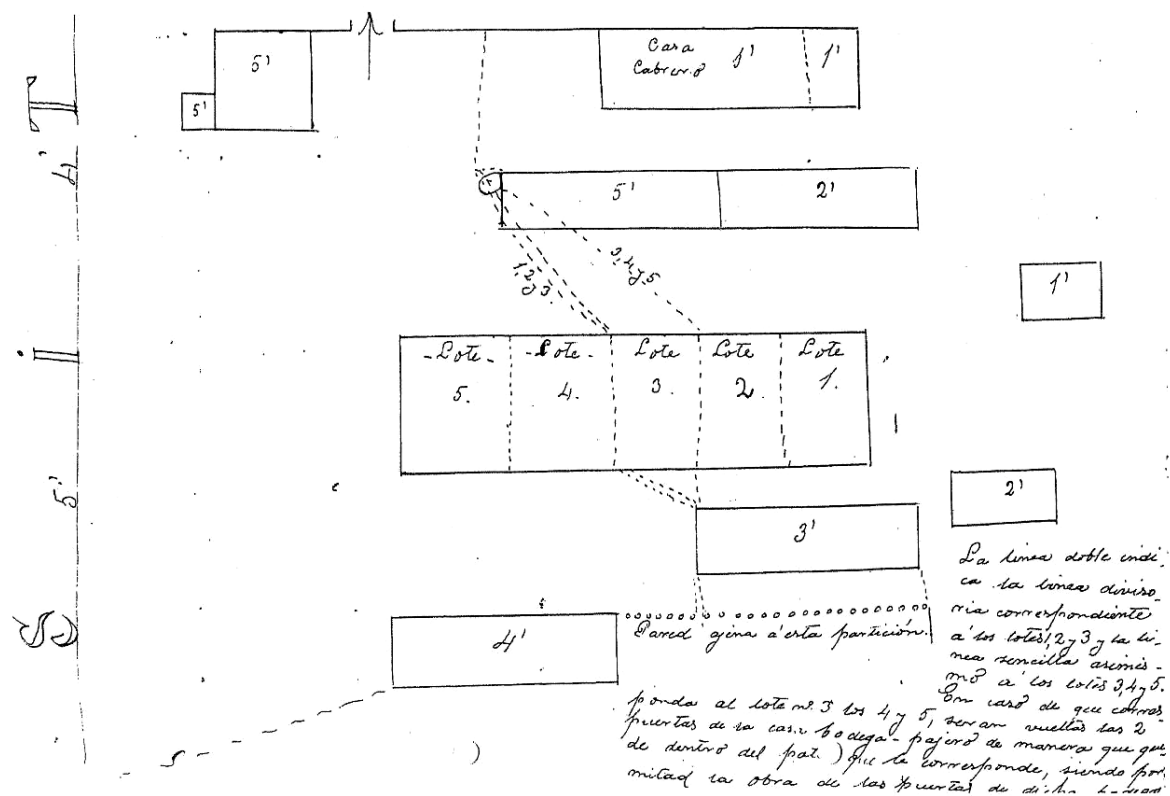 5'
Casa
Cabrero
1'
1'
5'
4'
5'
2'
3, 4 y 5
1, 2
y 3
1'
- Lote -
5.
- Lote -
4.
Lote
3.
Lote
2.
Lote
1.
5'
2'
3'
4'
Pared agena á esta partición.
La linea doble indi-
ca la linea diviso-
ria correspondiente
á los lotes 1, 2 y 3 y la li-
nea sencilla asimis-
mo á los lotes 3, 4 y 5.
En caso de que corres-
ponda al lote nº 3 los 4 y 5, seran vueltas las 2
puertas de la casa bodega - pajero de manera que que-
de dentro del pat ) que le corresponde, siendo por
mitad la obra de las puertas de dicha